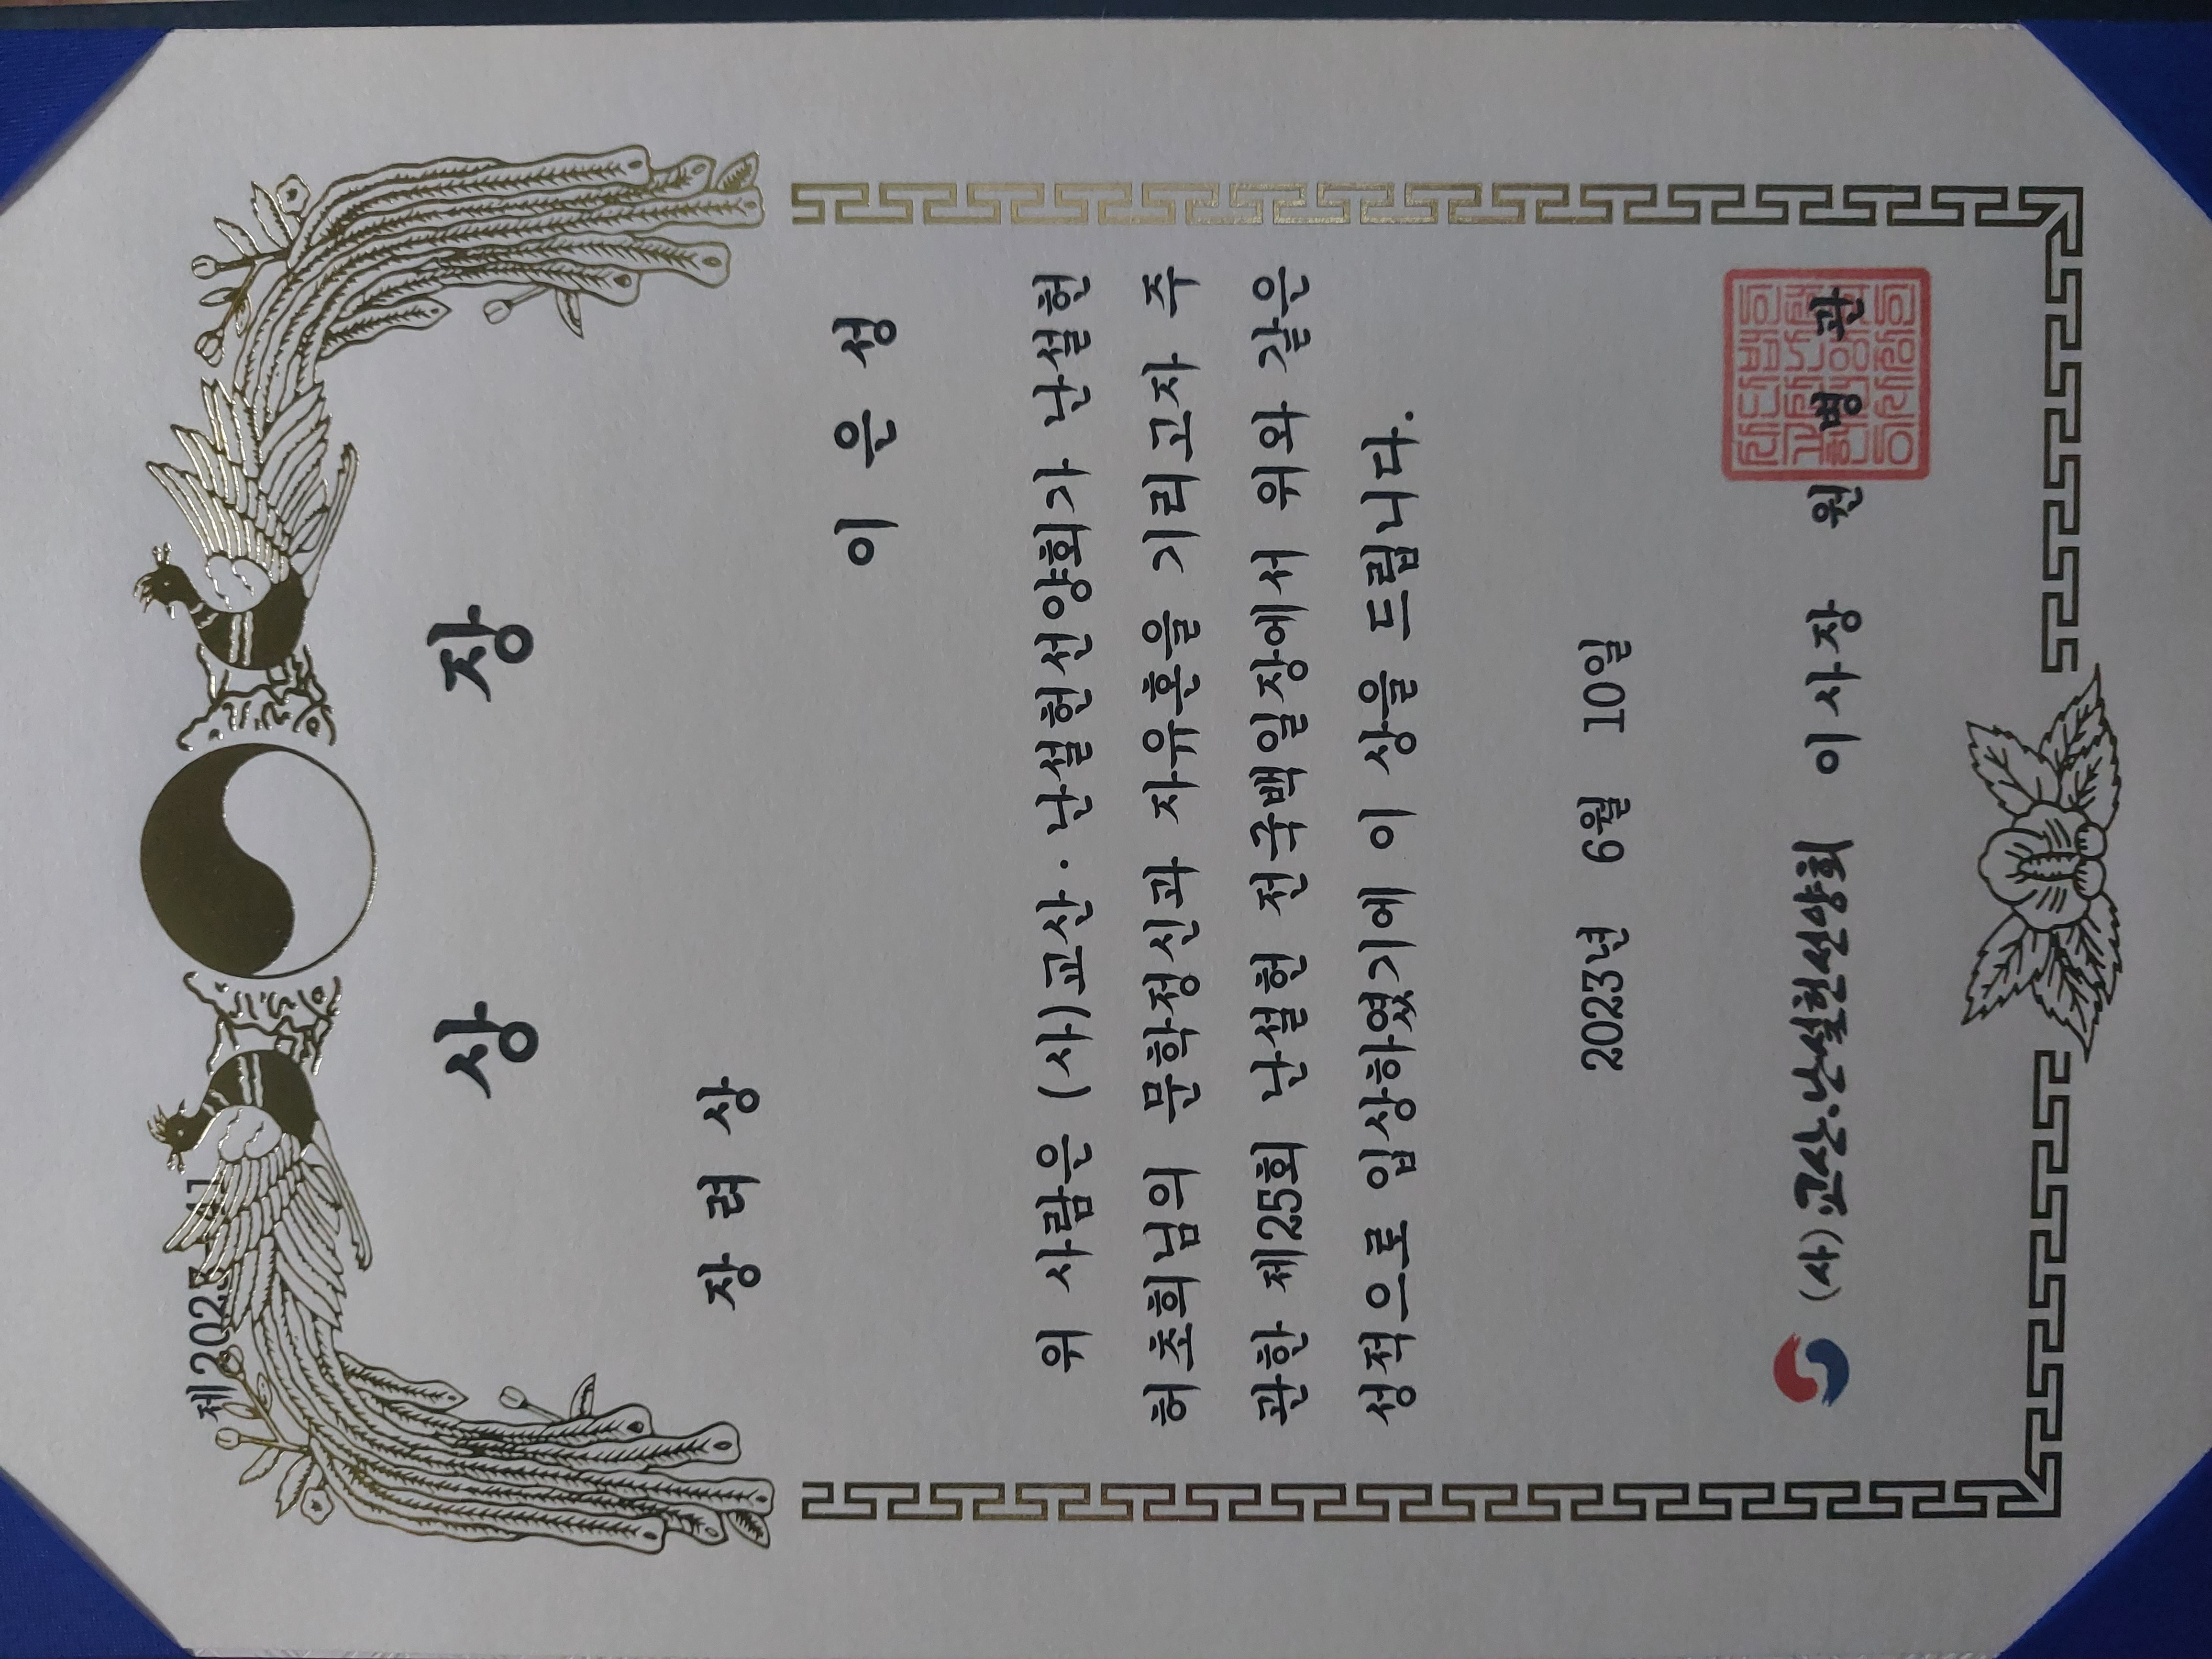 제2023
상 장
장 려 상
이 은 성
위 사람은 (사)교산·난설헌선양회가 난설헌
허초희님의 문학정신과 자유혼을 기리고자 주
관한 제25회 난설헌 전국백일장에서 위와 같은
성적으로 입상하였기에 이 상을 드립니다.
2023년 6월 10일
(사)교산·난설헌선양회 이사장 원 병 관